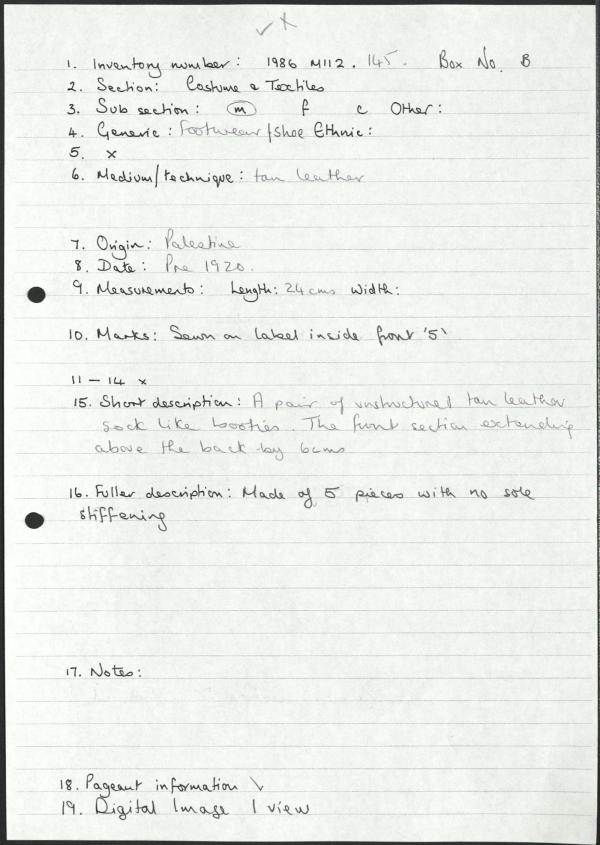 ✓ X
1. Inventory number: 1986 M112. 145. Box No. B
2. Section: Costume & Textiles
3. Sub section: m f c Other:
4. Generic: Footwear/shoe Ethnic:
5. x
6. Medium/technique: tan leather
7. Origin: Palestine
8. Date: Pre 1920.
9. Measurements: Length: 24cms Width:
10. Marks: Sewn on label inside front '5'
11 – 14 x
15. Short description: A pair of unstructured tan leather
sock like booties. The front section extending
above the back by 6cms
16. Fuller description: Made of 5 pieces with no sole
stiffening
17. Notes:
18. Pageant information \
19. Digital Image 1 view